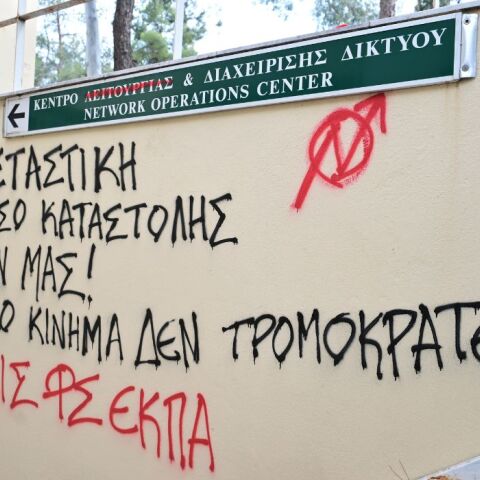 ΚΕΝΤΡΟ ΛΕΙΤΟΥΡΓΙΑΣ & ΔΙΑΧΕΙΡΙΣΗΣ ΔΙΚΤΥΟΥ
NETWORK OPERATIONS CENTER
N
ΕΤΑΣΤΙΚΗ
ΣΟ ΚΑΤΑΣΤΟΛΗΣ
Ν ΜΑΣ!
Ο ΚΙΝΗΜΑ ΔΕΝ ΤΡΟΜΟΚΡΑΤΕ
ΙΣ ΦΣ ΕΚΠΑ